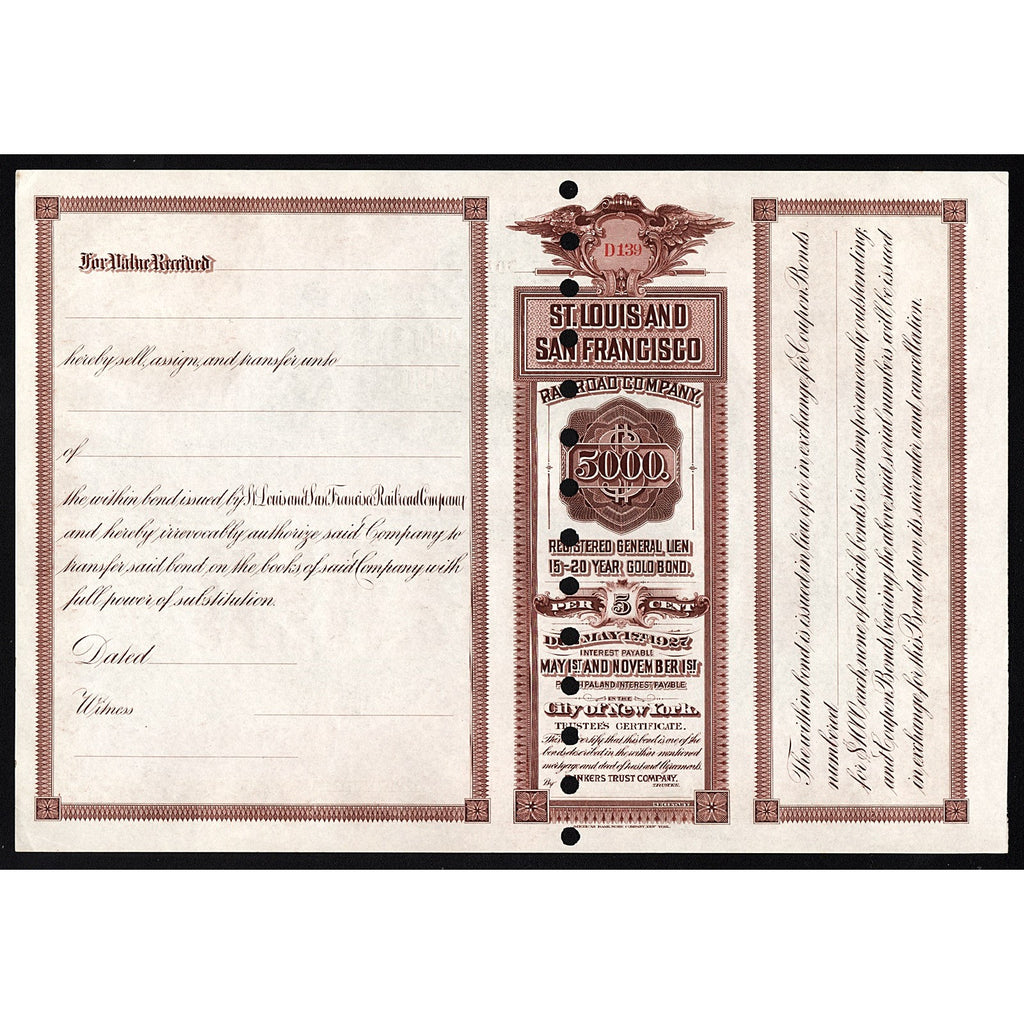 For Value Received
hereby sell, assign, and transfer, unto
of
the within bond issued by St. Louis and San Francisco Railroad Company
and hereby irrevocably authorize said Company to
transfer said bond on the books of said Company with
full power of substitution.
Dated
Witness
D139
ST. LOUIS AND
SAN FRANCISCO
RAILROAD COMPANY.
$5000.
REGISTERED GENERAL LIEN
15-20 YEAR GOLD BOND.
5 PER CENT
DUE MAY 1ST 1927
INTEREST PAYABLE
MAY 1ST AND NOVEMBER 1ST
PRINCIPAL AND INTEREST PAYABLE
IN THE
City of New York.
TRUSTEE'S CERTIFICATE.
This is to certify that this bond is one of the
bonds described in the within mentioned
mortgage and deed of trust and Agreements.
BANKERS TRUST COMPANY,
By TRUSTEE.
SECRETARY
AMERICAN BANK NOTE COMPANY, NEW YORK.
The within bond is issued in lieu of or in exchange for Coupon Bonds
numbered
for $1000 each, none of which bonds is contemporaneously outstanding;
and Coupon Bonds bearing the above said serial numbers will be issued
in exchange for this Bond upon its surrender and cancellation.